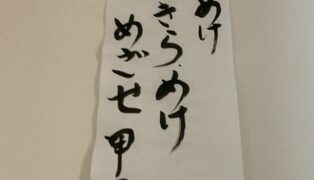 めけ
きらめけ
めざせ甲